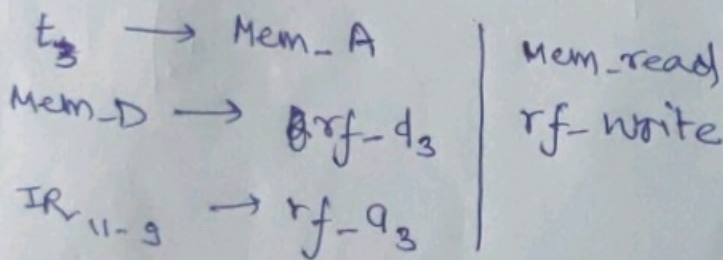 t₃ → Mem_A
Mem_D → rf_d₃
IR₁₁₋₉ → rf_a₃
Mem_read
rf_write